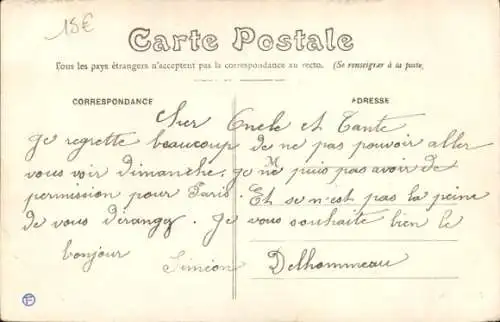 15€
Carte Postale
Tous les pays étrangers n'acceptent pas la correspondance au recto. (Se renseigner à la poste)
CORRESPONDANCE
ADRESSE
Cher Oncle et Tante
Je regrette beaucoup de ne pas pouvoir aller
vous voir dimanche, je ne puis pas avoir de
permission pour Paris. Et se n'est pas la peine
de vous dérangy. Je vous souhaite bien le
bonjour
Siméon Delhommeau